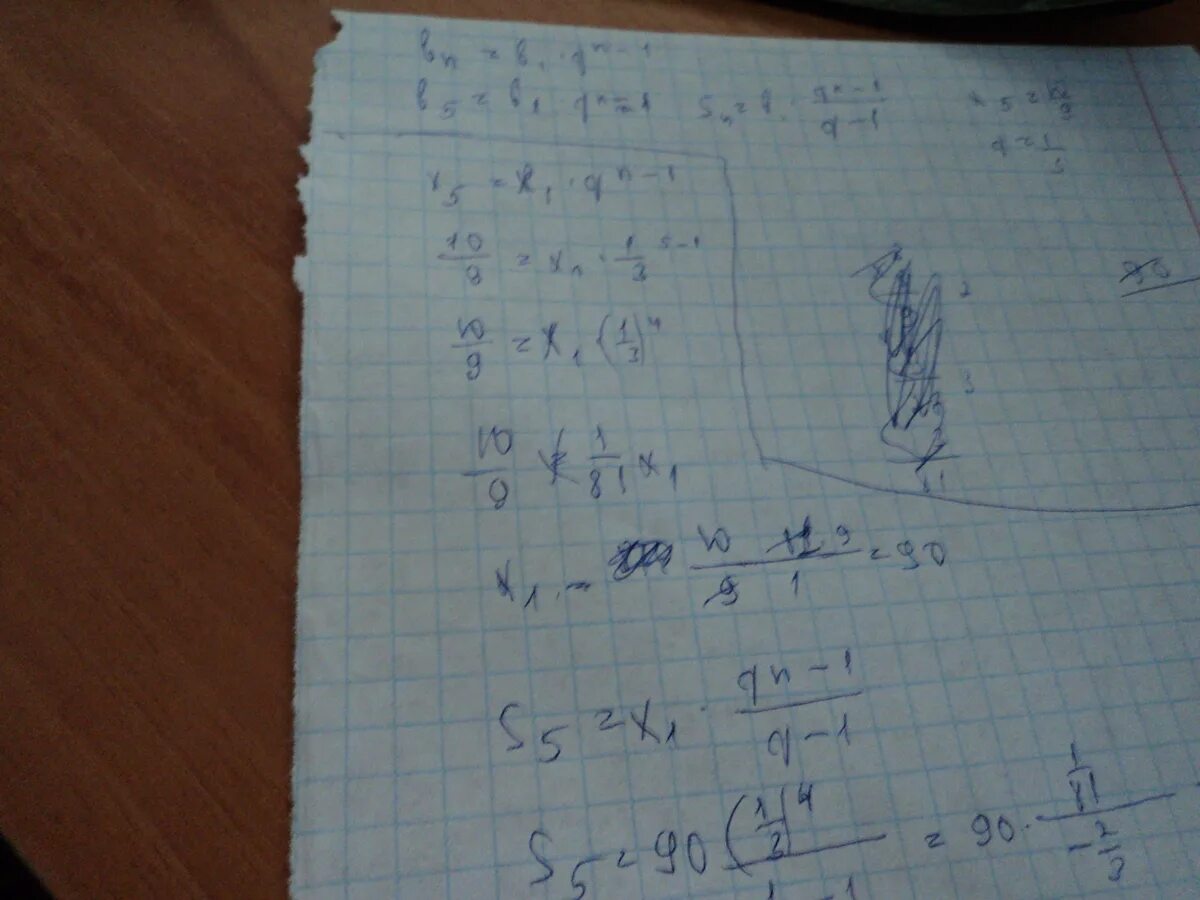 bₙ = b₁ · qⁿ⁻¹
b₅ = b₁ · qⁿ⁻¹   Sₙ = b · (qⁿ − 1)/(q − 1)   x₅ = 10/9
q = 1/3
x₅ = x₁ · qⁿ⁻¹
10/9 = xₙ · 1/3⁵⁻¹
10/9 = x₁ (1/3)⁴
10/9 = 1/81 x₁
x₁ = 10 · 9 / 9 · 1 = 90
S₅ = x₁ · (qⁿ − 1)/(q − 1)
S₅ = 90 (1/3)⁴ / 1 − 1 = 90 · (1/81)/(−2/3)